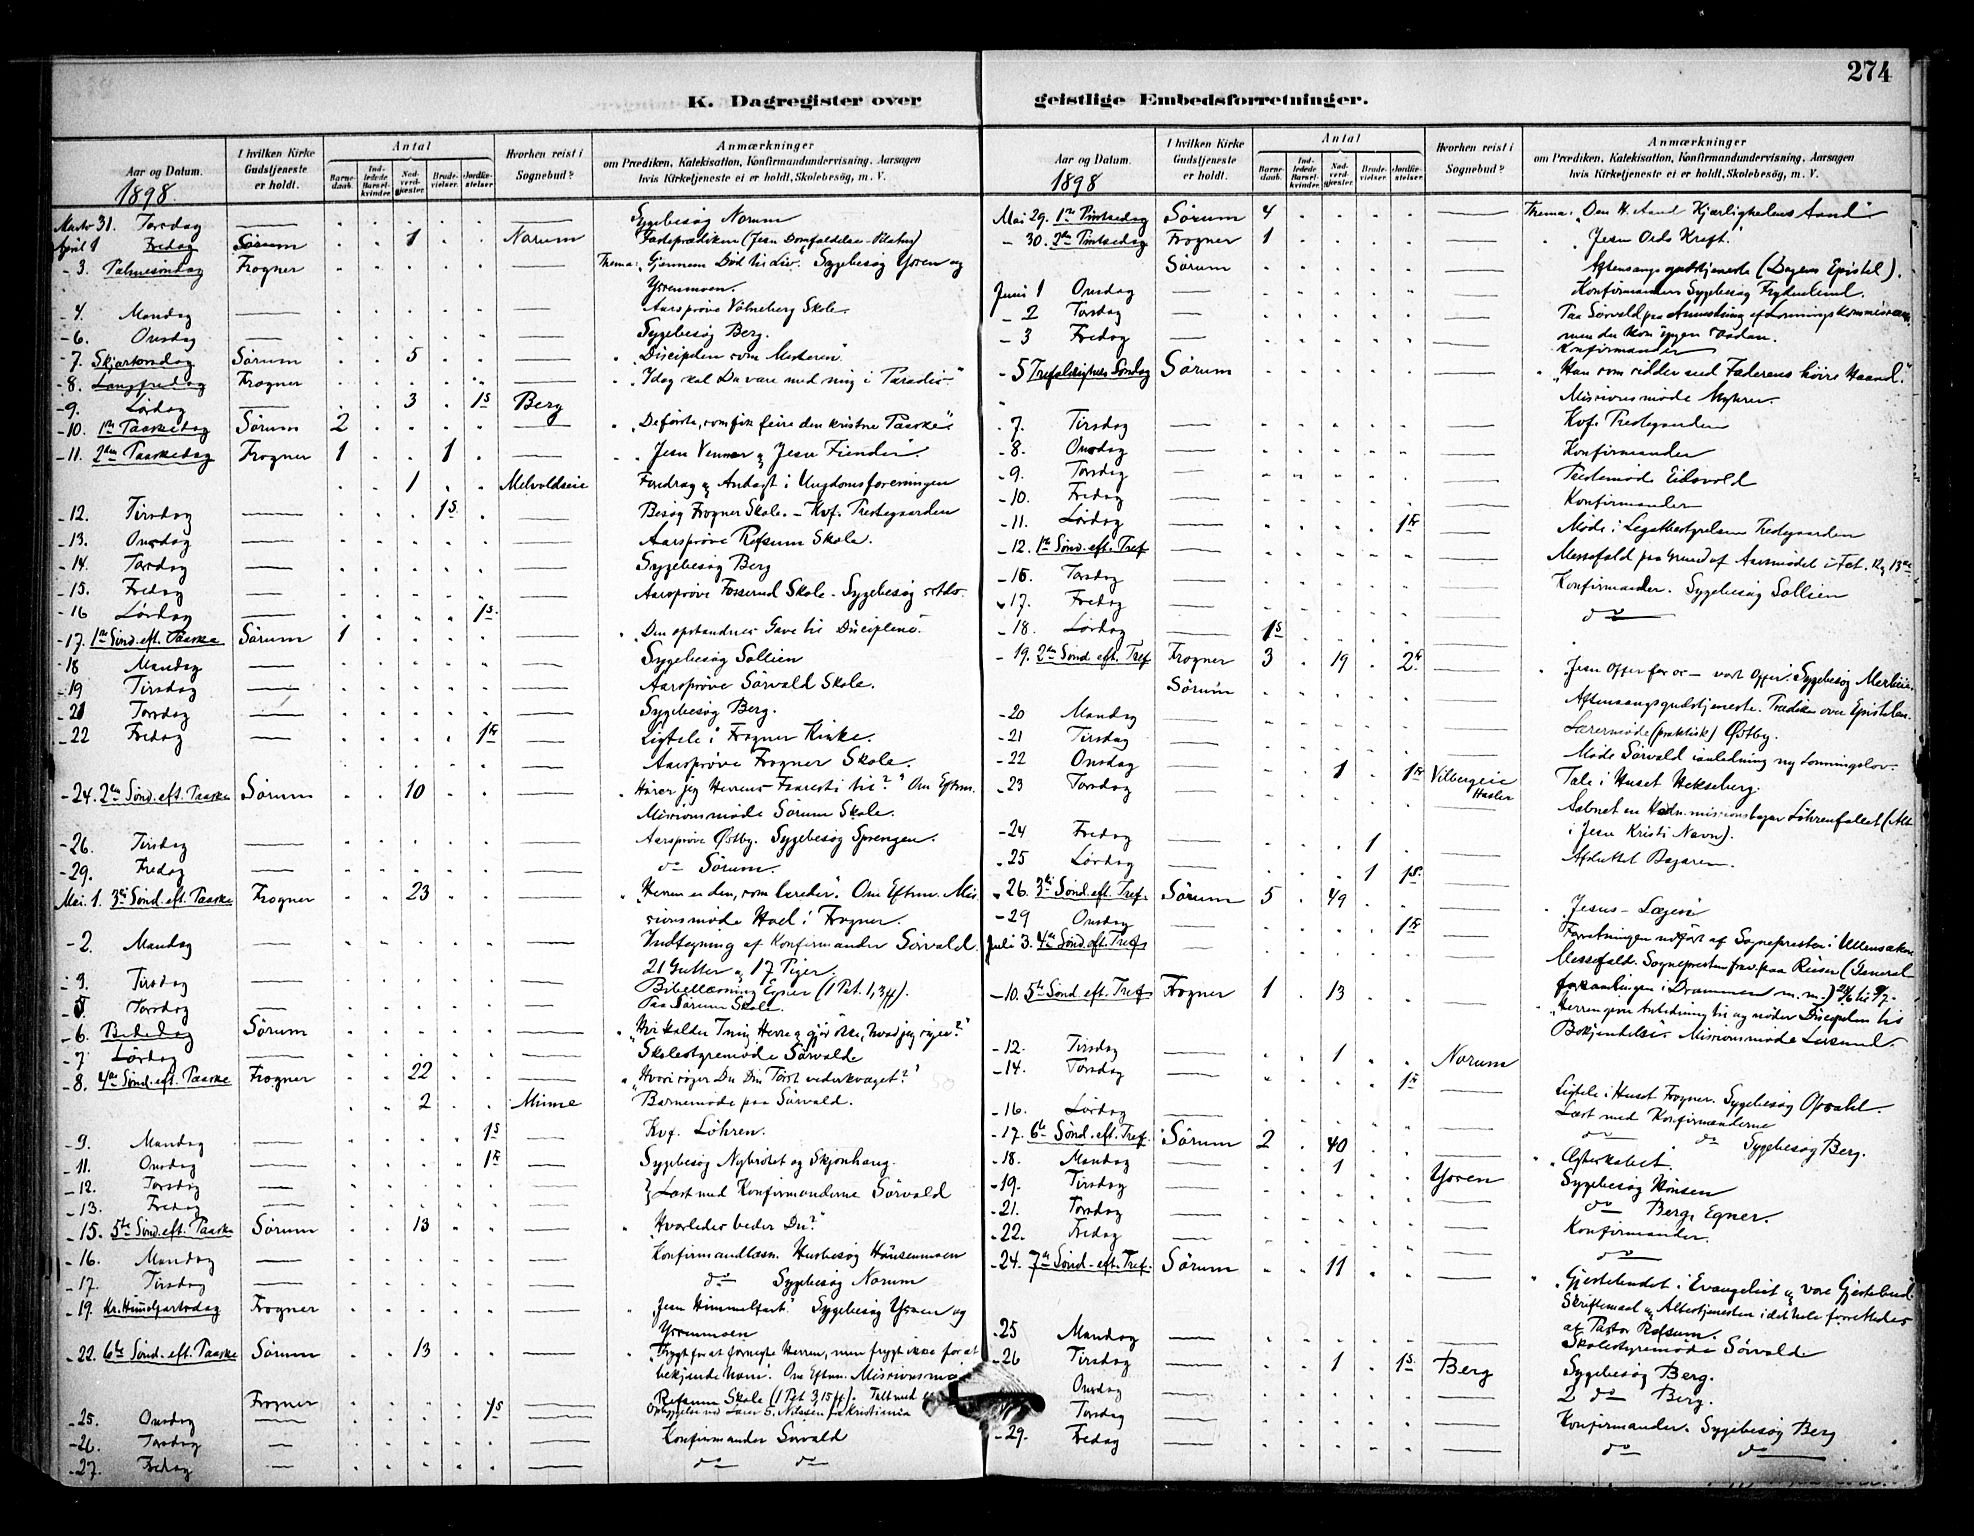 274
K. Dagregister over geistlige Embedsforretninger.
Aar og Datum. I hvilken Kirke Gudstjeneste er holdt. Antal Barnedaab. Indledede Barselkvinder Nadverdgjester Brudevielser. Jordfæstelser Hvorhen reist i Sognebud? Anmærkninger om Prædiken, Katekisation, Konfirmandundervisning, Aarsagen hvis Kirketjeneste ei er holdt, Skolebesøg, m. V.
1898.
Marts 31. Torsdag Sygebesøg Norum
April 1 Fredag Sørum 1 Norum Fasteprædiken (Jesu Domfældelse. Pilatus)
- 3. Palmesøndag Frogner Thema: "Gjennem Død til Liv". Sygebesøg Ysren og
Ysrenmoen.
- 4. Mandag Aarsprøve Vølneberg Skole.
- 6. Onsdag Sygebesøg Berg.
- 7. Skjærtorsdag Sørum 5 "Disciplen som Mesteren"
- 8. Langfredag Frogner "Idag skal Du være med mig i Paradis"
- 9. Lørdag 3 1 S Berg
- 10. 1ste Paaskedag Sørum 2 "De første, som fik feire den kristne Paaske"
- 11. 2den Paaskedag Frogner 1 1 "Jesu Venner og Jesu Fiender".
1 Melvoldseie Foredrag og Andagt i Ungdomsforeningen
- 12. Tirsdag 1 S. Besøg Frogner Skole. - Kvf. Prestegaarden
- 13. Onsdag Aarsprøve Refsum Skole.
- 14. Torsdag Sygebesøg Berg
- 15. Fredag Aarsprøve Fosserud Skole - Sygebesøg
- 16 Lørdag 1 S.
- 17. 1ste Sønd. eft. Paaske Sørum 1 "Den opstandnes Gave til Disciplene".
- 18 Mandag Sygebesøg Sollien
- 19 Tirsdag Aarsprøve Sørvald Skole.
- 21 Torsdag Sygebesøg Berg.
- 22 Fredag 1 Fr Ligtale i Frogner Kirke.
Aarsprøve Frogner Skole.
- 24. 2den Sønd. eft. Paaske Sørum 10 "Hører jeg Herrens Faaresti til?" Om Eftm.
Missionsmøde Sørum Skole.
- 26. Tirsdag Aarsprøve Østby. Sygebesøg Sprengen.
- 29. Fredag do Sørum.
Mai. 1. 3die Sønd. eft. Paaske Frogner 23 "Herren er den, som leder". Om Eftm. Mis-
sionsmøde Hvel i Frogner.
- 2. Mandag Indtegning af Konfirmander Sørvald.
21 Gutter og 17 Piger.
- 3. Tirsdag Bibellæsning Egner (1 Pet. 1, 3ff).
- 5 Torsdag Paa Sørum Skole
- 6. Bededag Sørum "Hvi kalder I mig Herre og gjør ikke, hvad jeg siger?"
- 7 Lørdag Skolestyremøde Sørvald
- 8. 4de Sønd. eft. Paaske Frogner 22 "Hvori søger Du Din Tørst vederkvæget?"
2 Minne Barnemøde paa Sørvald.
- 9. Mandag 1 S Kvf. Løhren.
- 11. Onsdag 1 Fr Sygebesøg Nybrottet og Skjønhaug.
- 12. Torsdag } Læst med Konfirmanderne Sørvald
- 13. Fredag
- 15. 5te Sønd. eft. Paaske Sørum 13 "Hvorledes beder Du?"
- 16. Mandag Konfirmandlæsn. Husbesøg Hønsenmoen
- 17. Tirsdag do Sygebesøg Norum
- 19. Kr. Himmelfartsdag Frogner "Jesu Himmelfart". Sygebesøg Ysren og
Ysrenmoen
- 22. 6te Sønd. eft. Paaske Sørum 13 "Frygt for at fornegte Herren, men frygt ikke for at
bekjende ham". Om Eftm. Missionsmø
Frogner Refsum Skole (1 Pet 3, 15ff). Talt med
- 25. Onsdag 1 S Lærer S. Nilssen fra Kristiania
- 26. Torsdag Konfirmander Sørvald
- 27. Fredag do do
Aar og Datum. I hvilken Kirke Gudstjeneste er holdt. Antal Barnedaab. Indledede Barselkvinder Nadverdgjester Brudevielser. Jordfæstelser Hvorhen reist i Sognebud? Anmærkninger om Prædiken, Katekisation, Konfirmandundervisning, Aarsagen hvis Kirketjeneste ei er holdt, Skolebesøg, m. V.
1898
Mai 29. 1ste Pintsedag Sørum 4 Thema: "Den H. Aand Kjærlighedens Aand"
- 30. 2den Pintsedag Frogner 1 "Jesu Ords Kraft."
Sørum Aftensangsgudstjeneste (Dagens Epistel).
Juni 1 Onsdag Konfirmander Sygebesøg Frydenlund.
- 2 Torsdag Paa Sørvald paa Anmodning af Lønningskommissionen,
- 3 Fredag men der kom ingen saadan.
Konfirmander
- 5 Trefoldigheds Søndag Sørum "Han som sidder ved Faderens høire Haand."
Missionsmøde Myhrer.
- 7. Tirsdag Kvf. Prestegaarden
- 8. Onsdag Konfirmander
- 9. Torsdag Prestemøde Eidsvold
- 10. Fredag Konfirmander
- 11. Lørdag 1 Fr Møde i Legatbestyrelsen Prestegaarden
- 12. 1ste Sønd. eft. Tref Messefald paa Grund af Aarsmødet i Fet. 12 og 13de
- 16. Torsdag Konfirmander. Sygebesøg Sollien
- 17. Fredag do
- 18. Lørdag 1 S
- 19. 2den Sønd. eft. Tref Frogner 3 19 2 Fr "Jesu Offer for os - vort Offer". Sygebesøg
Sørum Aftensangsgudstjeneste. Prædiken over Epistelen.
- 20 Mandag Lærermøde (praktisk) Østby.
- 21 Tirsdag Møde Sørvald i anledning ny Lønningslov.
- 22 Onsdag 1 1 Fr Vilbergeie Tale i Huset Hekseberg.
- 23 Torsdag Hasler Aabnet en Hedn. missionsbazar Løhrenfallet (Alt
- 24 Fredag 1 i Jesu Kristi Navn).
- 25 Lørdag 1 1 S. Afsluttet Bazaren.
- 26. 3die Sønd. eft. Tref. Sørum 5 49 "Jesus - Lægen
- 29 Onsdag 1 Fr Forretningen udført af Sognepresten i Ullensaker
Juli 3. 4de Sønd. eft. Tref Messefald. Sognepresten frav. paa Reiser (General
forsamlingen i Drammen m. m.)
- 10. 5te Sønd. eft. Tref Frogner 1 13 "Herren giver Anledning til og nøder Disciplen til
Bekjendelse". Missionsmøde
- 12. Tirsdag 1 Norum
- 14. Torsdag 1 Fr Ligtale i Huset Frogner. Sygebesøg Opsahl.
- 16. Lørdag Læst med Konfirmanderne
- 17. 6te Sønd. eft. Tref. Sørum 2 40 do do Sygebesøg Berg.
- 18. Mandag 1 Ysren "Ægteskabet".
- 19. Tirsdag Sygebesøg Hønsen
- 21. Torsdag do Berg, Egner.
- 22. Fredag Konfirmander.
- 24. 7de Sønd. eft. Tref. Sørum 11 do
"Gjestebudet i Evangeliet og vore Gjestebud".
Skriftemaal og Altertjenesten i det hele forrettedes
af Pastor Refsum.
- 25 Mandag Skolestyremøde Sørvald
- 26 Tirsdag 1 1 S. Berg Sygebesøg Berg.
Onsdag 2 do Berg.
Torsdag Konfirmander. Sygebesøg Berg
- 29. Fredag do do